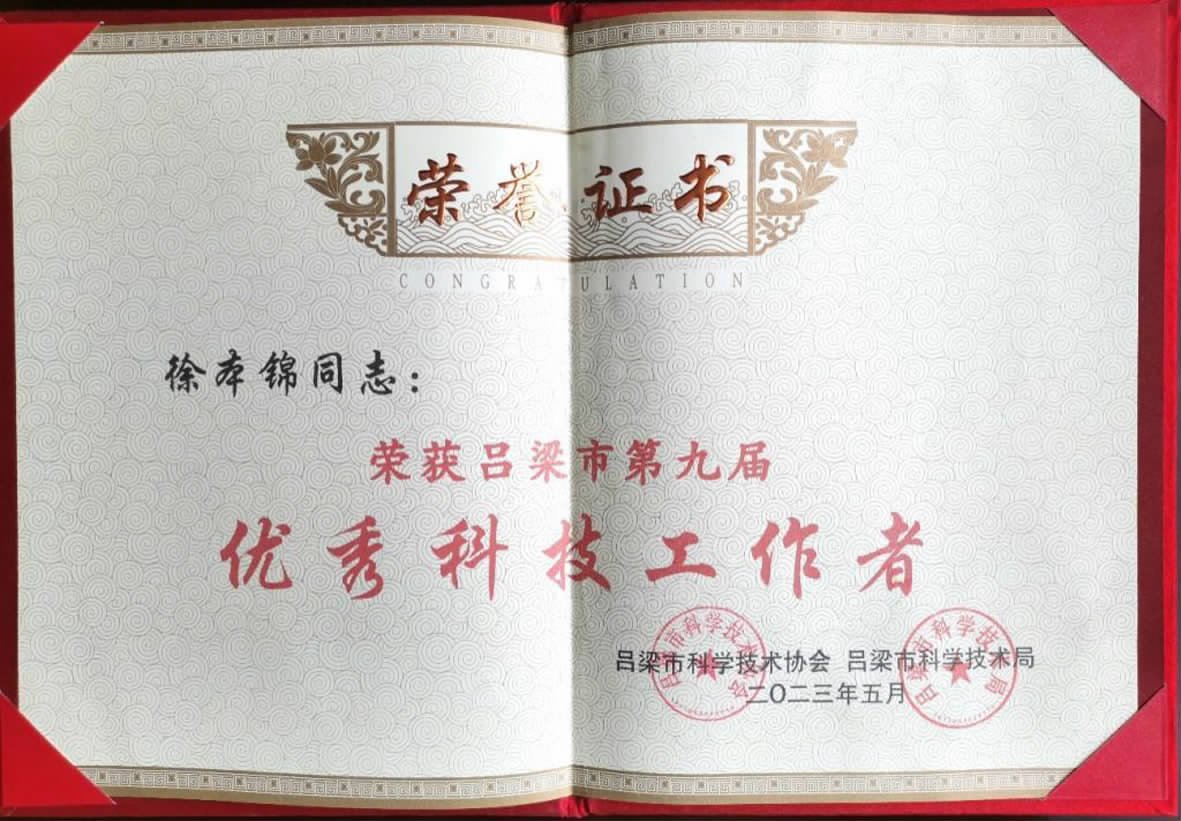 荣誉证书
CONGRATULATION
徐本锦同志：
荣获吕梁市第九届
优秀科技工作者
吕梁市科学技术协会 吕梁市科学技术局
二〇二三年五月
吕梁市科学技术协会
吕梁市科学技术局